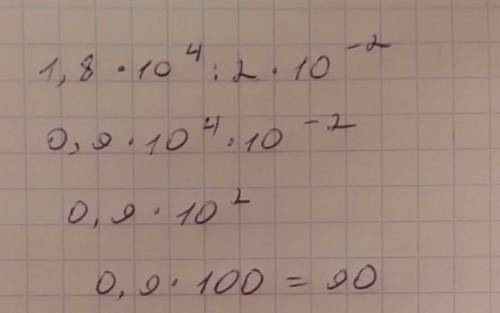 1,8 · 10⁴ : 2 · 10⁻²
0,9 · 10⁴ · 10⁻²
0,9 · 10²
0,9 · 100 = 90